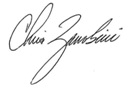 Chris Zambini